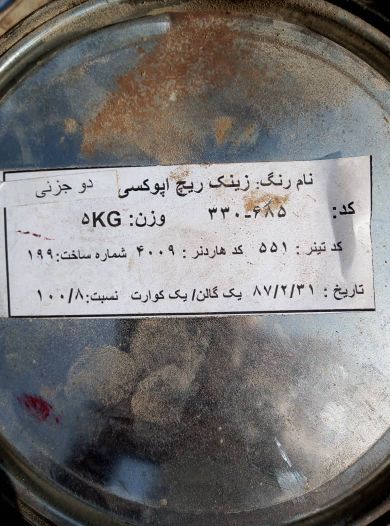 نام رنگ: زینک ریچ اپوکسی دو جزئی
کد: ۳۳۰-۶۸۵ وزن: ۵KG
کد تینر : ۵۵۱ کد هاردنر : ۴۰۰۹ شماره ساخت: ۱۹۹
تاریخ : ۸۷/۲/۳۱ یک گالن/ یک کوارت نسبت: ۱۰۰/۸